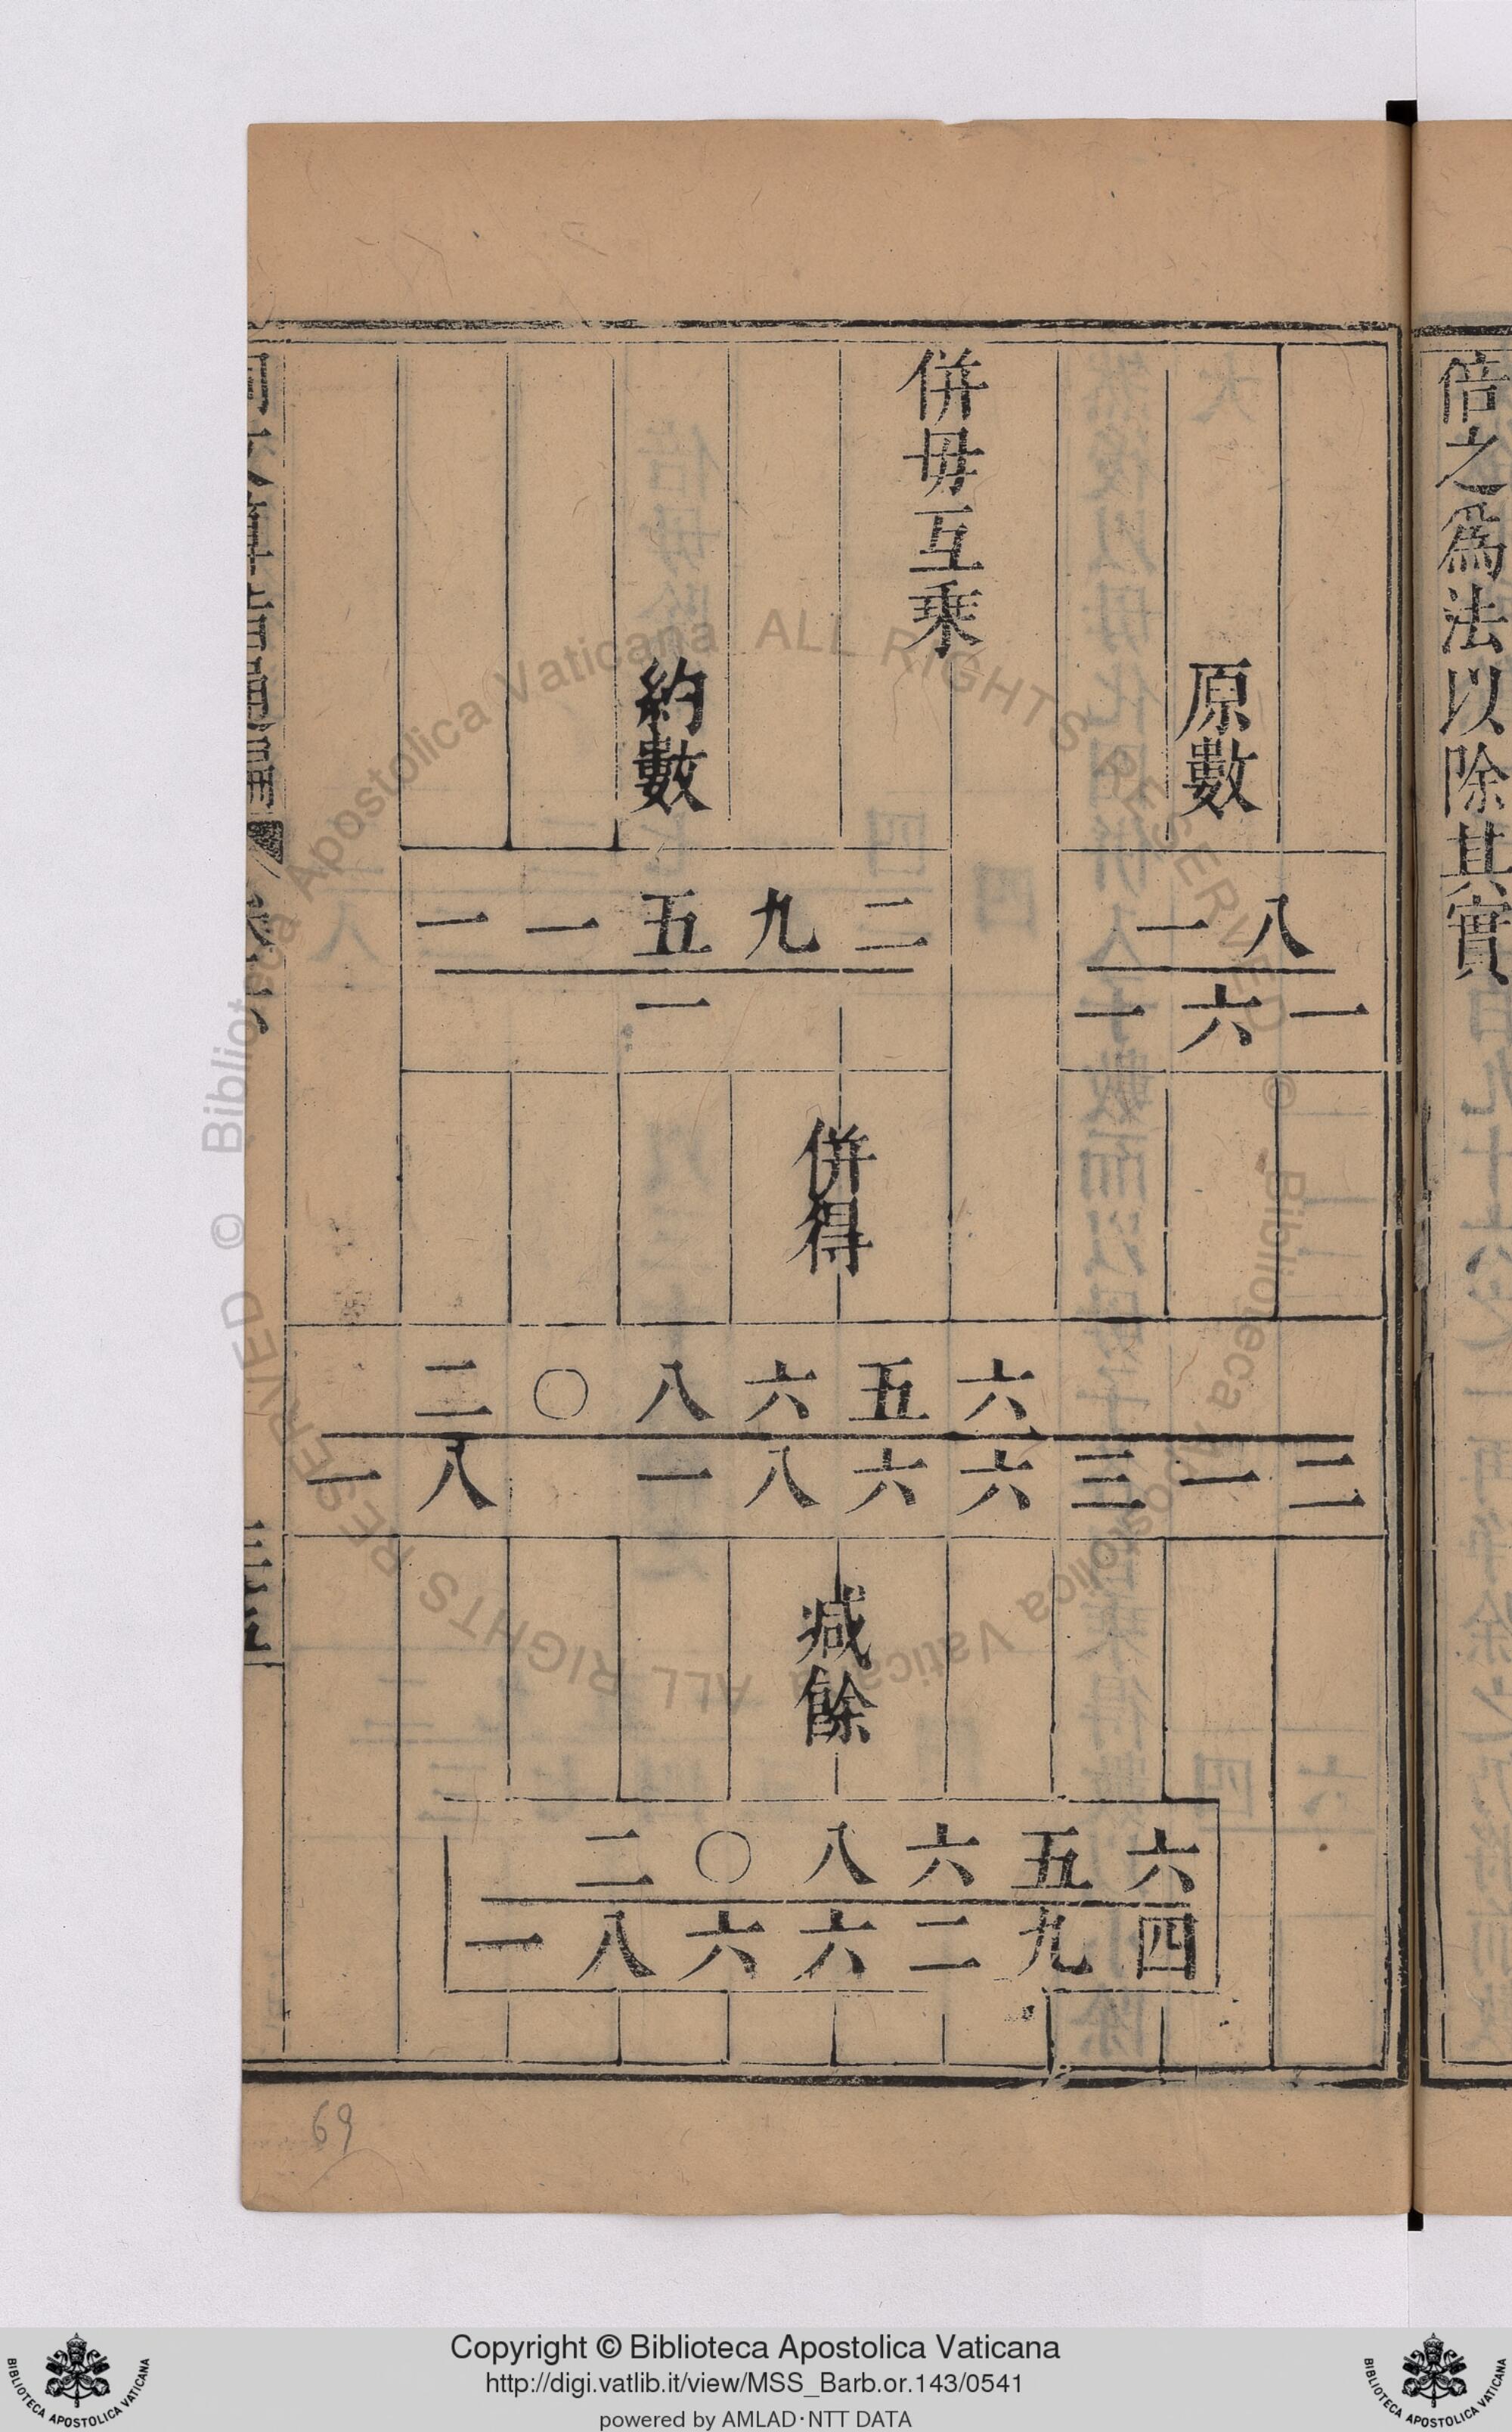 倍之爲法以除其實
原數
一八
一六一
併毋互乘
約數
一一五九二
一
併得
二〇八六五六
一八 一八六六三一二
减餘
二〇八六五六
一八六六二九四
69
© Biblioteca Apostolica Vaticana ALL RIGHTS RESERVED
© Biblioteca Apostolica Vaticana ALL RIGHTS RESERVED
Copyright © Biblioteca Apostolica Vaticana
http://digi.vatlib.it/view/MSS_Barb.or.143/0541
powered by AMLAD·NTT DATA
BIBLIOTECA APOSTOLICA VATICANA
BIBLIOTECA APOSTOLICA VATICANA